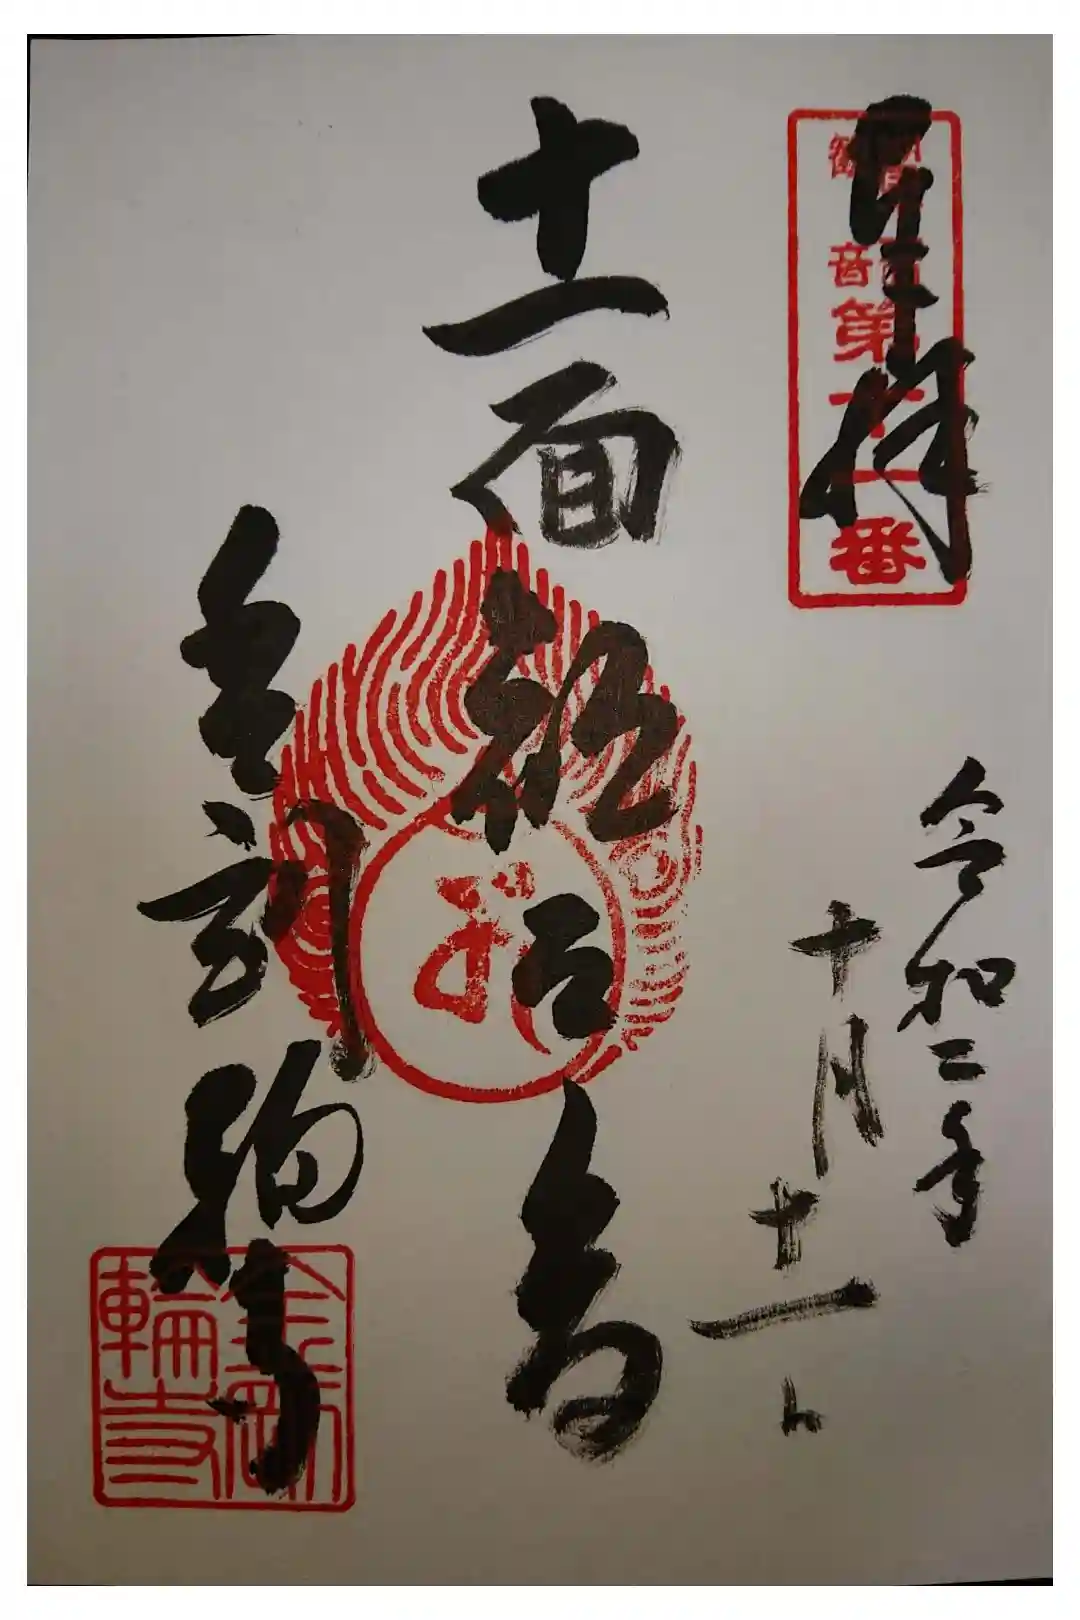 奉拝
観音
第十一番
令和二年
十月
十一面観世音
金剛輪寺
金剛
輪寺